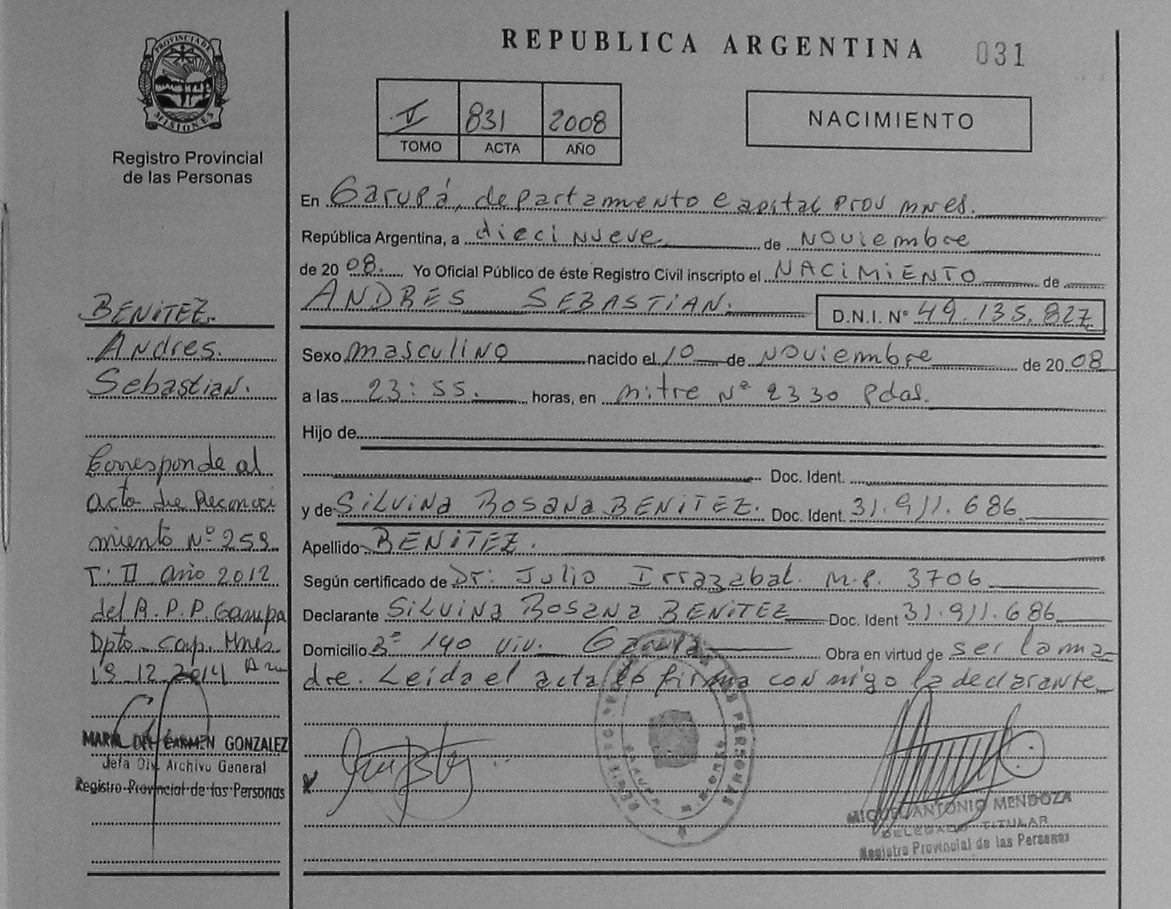 REPUBLICA ARGENTINA 031
PROVINCIA DE
MISIONES
Registro Provincial
de las Personas
II 831 2008
TOMO ACTA AÑO
NACIMIENTO
En Garupá, departamento Capital Prov Mnes.
República Argentina, a diecinueve de Noviembre
de 20 08. Yo Oficial Público de éste Registro Civil inscripto el NACIMIENTO de
ANDRES SEBASTIAN. D.N.I. Nº 49.135.827
Sexo masculino nacido el 10 de Noviembre de 20 08
a las 23:55. horas, en mitre Nº 2330 Pdas.
Hijo de
Doc. Ident.
y de SILVINA ROSANA BENITEZ. Doc. Ident. 31.911.686
Apellido BENITEZ.
Según certificado de Dr: Julio Irrazabal. M.P. 3706
Declarante SILVINA ROSANA BENITEZ Doc. Ident 31.911.686
Domicilio 140 viv. Garupá Obra en virtud de ser la ma-
dre. Leída el acta lo firma conmigo la declarante
BENITEZ.
Andres.
Sebastian.
Corresponde al
acta de Reconoci
miento Nº 259
T: II Año 2012
del R.P.P. Garupa
Dpto Cap. Mnes
19 12 2014
MARIA DEL CARMEN GONZALEZ
Jefa Div. Archivo General
Registro Provincial de las Personas
MIGUEL ANTONIO MENDOZA
DELEGADO TITULAR
Registro Provincial de las Personas